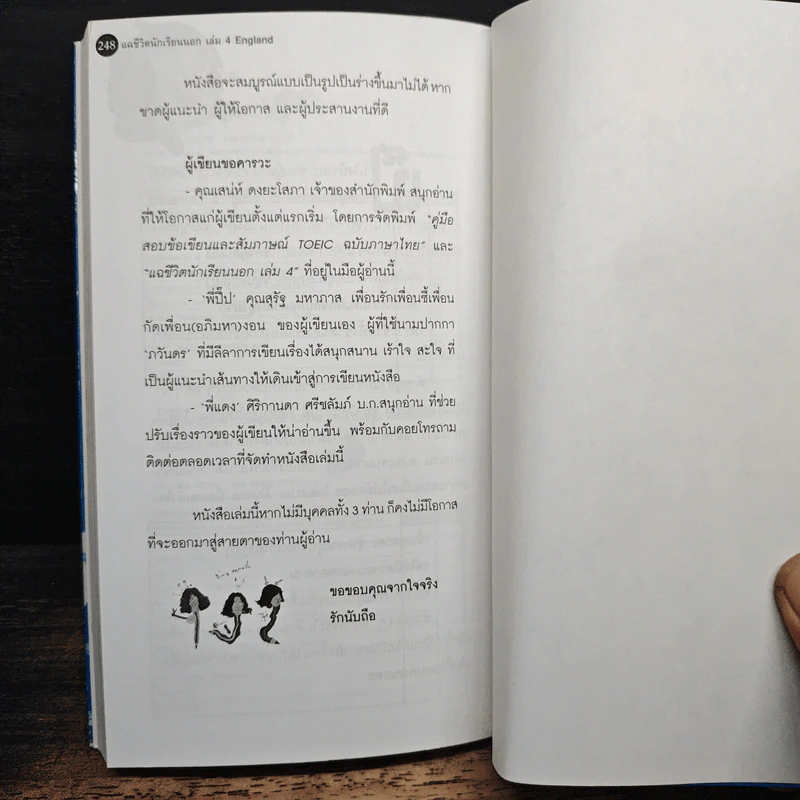 248 แฉชีวิตนักเรียนนอก เล่ม 4 England
หนังสือจะสมบูรณ์แบบเป็นรูปเป็นร่างขึ้นมาไม่ได้ หาก
ขาดผู้แนะนำ ผู้ให้โอกาส และผู้ประสานงานที่ดี
ผู้เขียนขอคารวะ
- คุณเสน่ห์ ดงยะโสภา เจ้าของสำนักพิมพ์ สนุกอ่าน
ที่ให้โอกาสแก่ผู้เขียนตั้งแต่แรกเริ่ม โดยการจัดพิมพ์ “คู่มือ
สอบข้อเขียนและสัมภาษณ์ TOEIC ฉบับภาษาไทย” และ
“แฉชีวิตนักเรียนนอก เล่ม 4” ที่อยู่ในมือผู้อ่านนี้
- ‘พี่ปี๊ป’ คุณสุรัฐ มหาภาส เพื่อนรักเพื่อนซี้เพื่อน
กัดเพื่อน(อภิมหา)งอน ของผู้เขียนเอง ผู้ที่ใช้นามปากกา
‘ภวันดร’ ที่มีลีลาการเขียนเรื่องได้สนุกสนาน เร้าใจ สะใจ ที่
เป็นผู้แนะนำเส้นทางให้เดินเข้าสู่การเขียนหนังสือ
- ‘พี่แดง’ ศิริกานดา ศรีชลัมภ์ บ.ก.สนุกอ่าน ที่ช่วย
ปรับเรื่องราวของผู้เขียนให้น่าอ่านขึ้น พร้อมกับคอยโทรถาม
ติดต่อตลอดเวลาที่จัดทำหนังสือเล่มนี้
หนังสือเล่มนี้หากไม่มีบุคคลทั้ง 3 ท่าน ก็คงไม่มีโอกาส
ที่จะออกมาสู่สายตาของท่านผู้อ่าน
ขอขอบคุณจากใจจริง
รักนับถือ